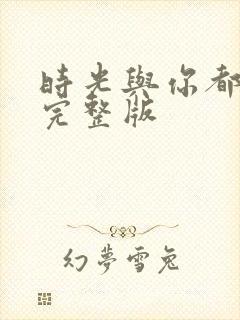 時光與你都
完整版
幻夢雪兔